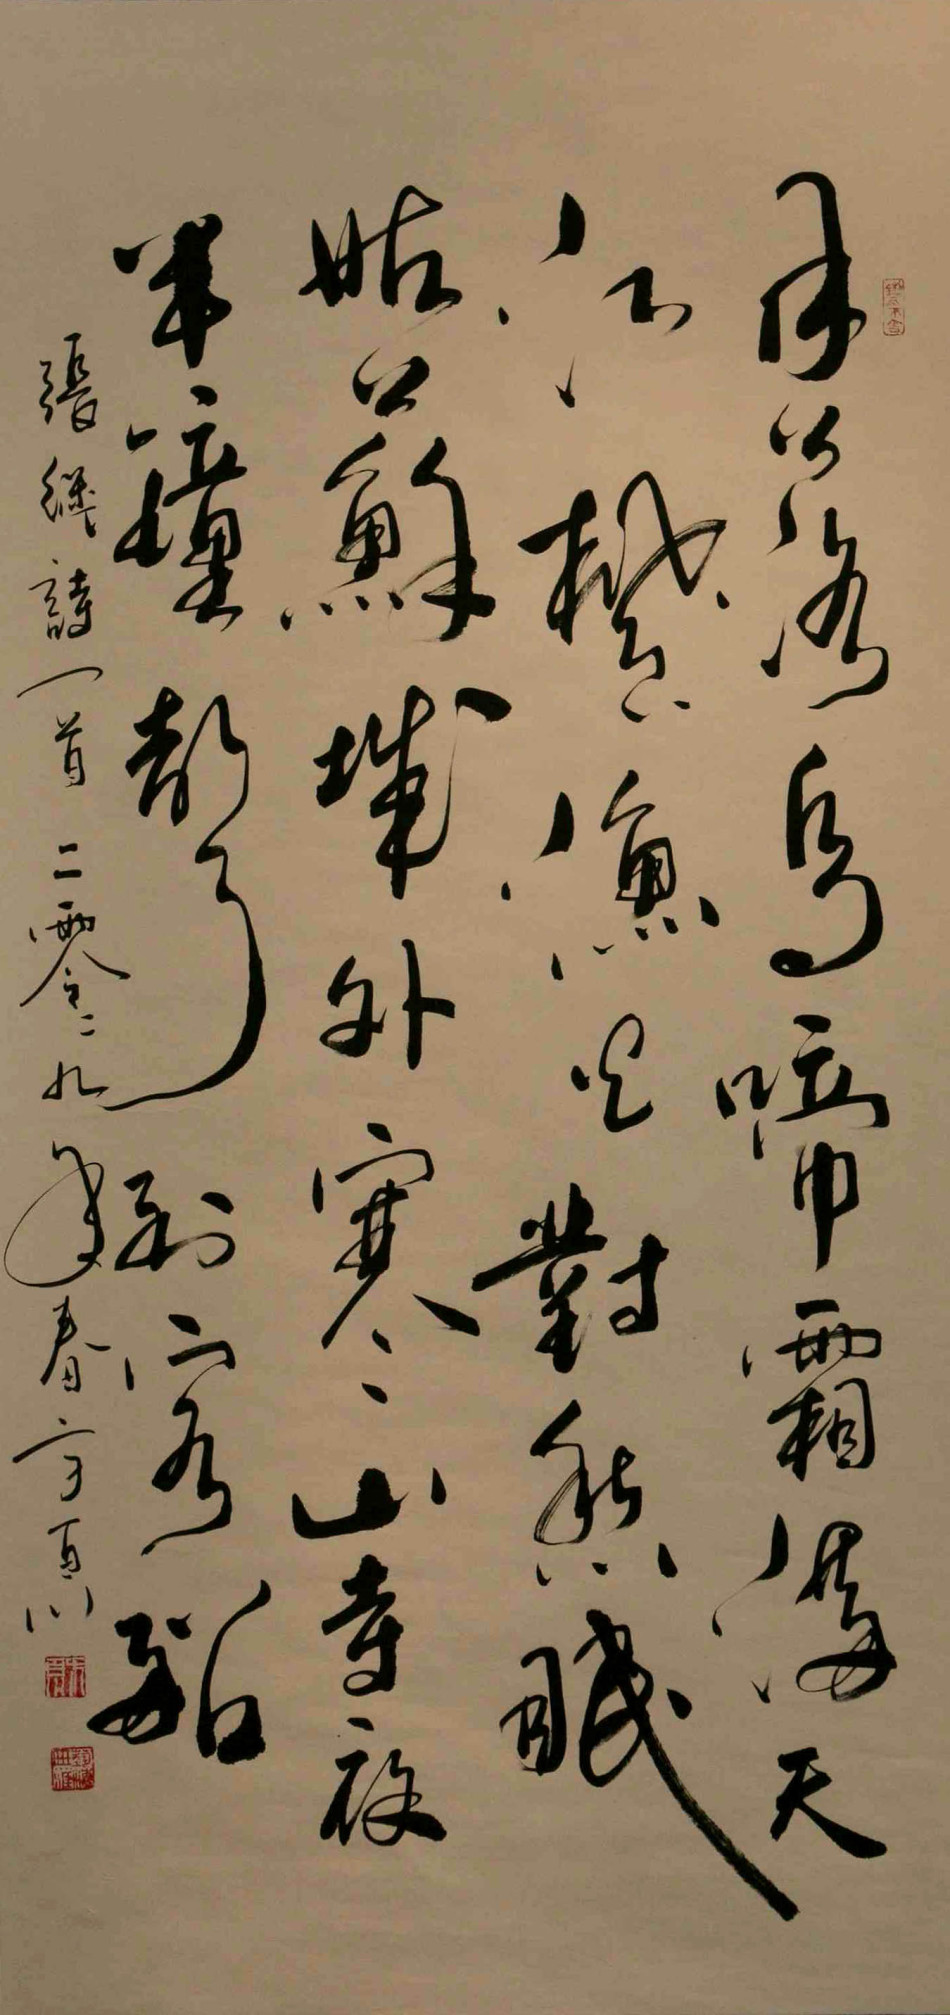 月落烏啼霜滿天
江楓漁火對愁眠
姑蘇城外寒山寺夜
半鐘聲到客船
張繼詩一首二零〻九年春方百川